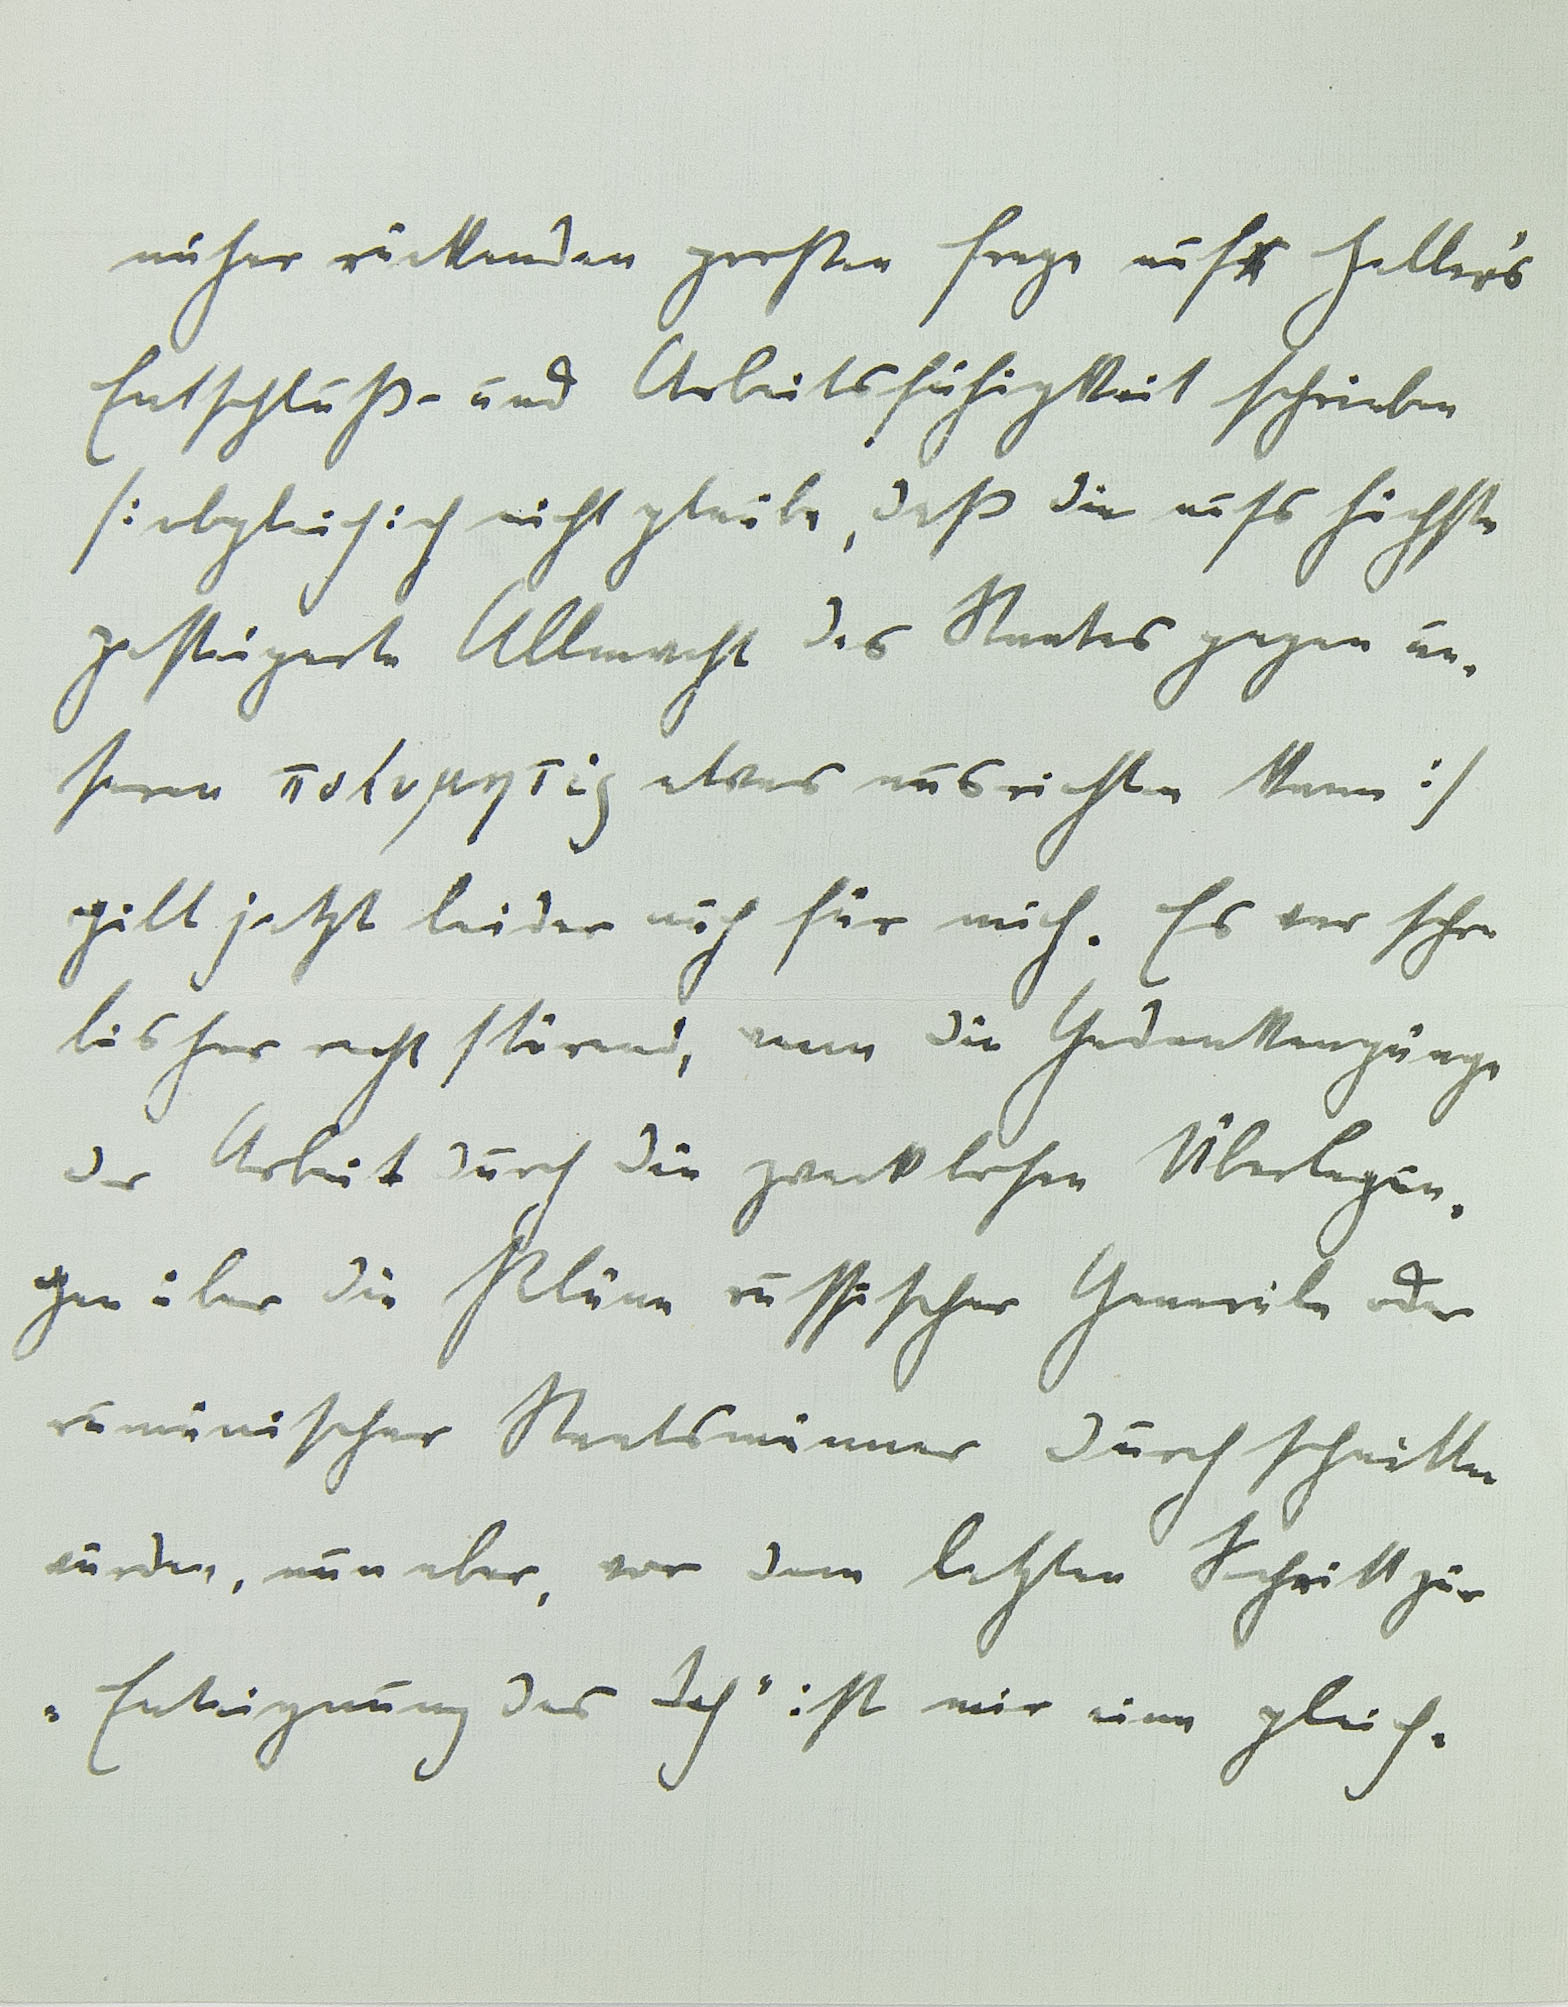 näher rückenden großen Frage auf Heller's
Entschluß- und Arbeitsfähigkeit schrieben
/: obgleich ich nicht glaube, daß die aufs höchste
gesteigerte Allmacht des Staates gegen un-
seren πολυμητις etwas ausrichten kann :/
gilt jetzt leider auch für mich. Es war schon
bisher recht störend, wenn die Gedankengänge
der Arbeit durch die zwecklosen Überlegun-
gen über die Pläne russischer Generäle oder
rumänischer Staatsmänner durchschnitten
wurden, nun aber, vor dem letzten Schritt zur
„Enteignung des Ich" ist mir eine gleich-